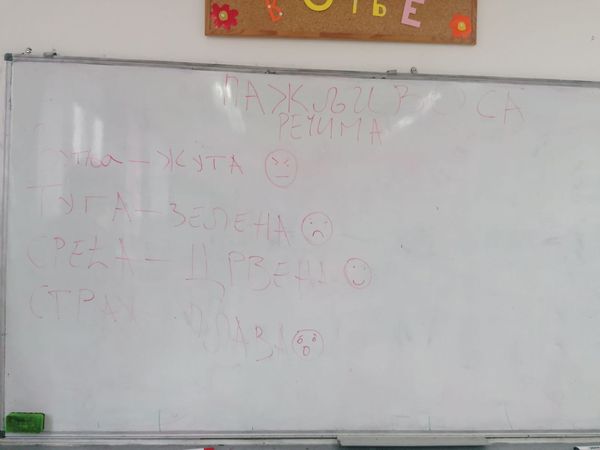 ПАЖЉИВО СА
РЕЧИМА
– ЖУТА
ТУГА – ЗЕЛЕНА
СРЕЋА – ЦРВЕНА
СТРАХ
ПЛАВА